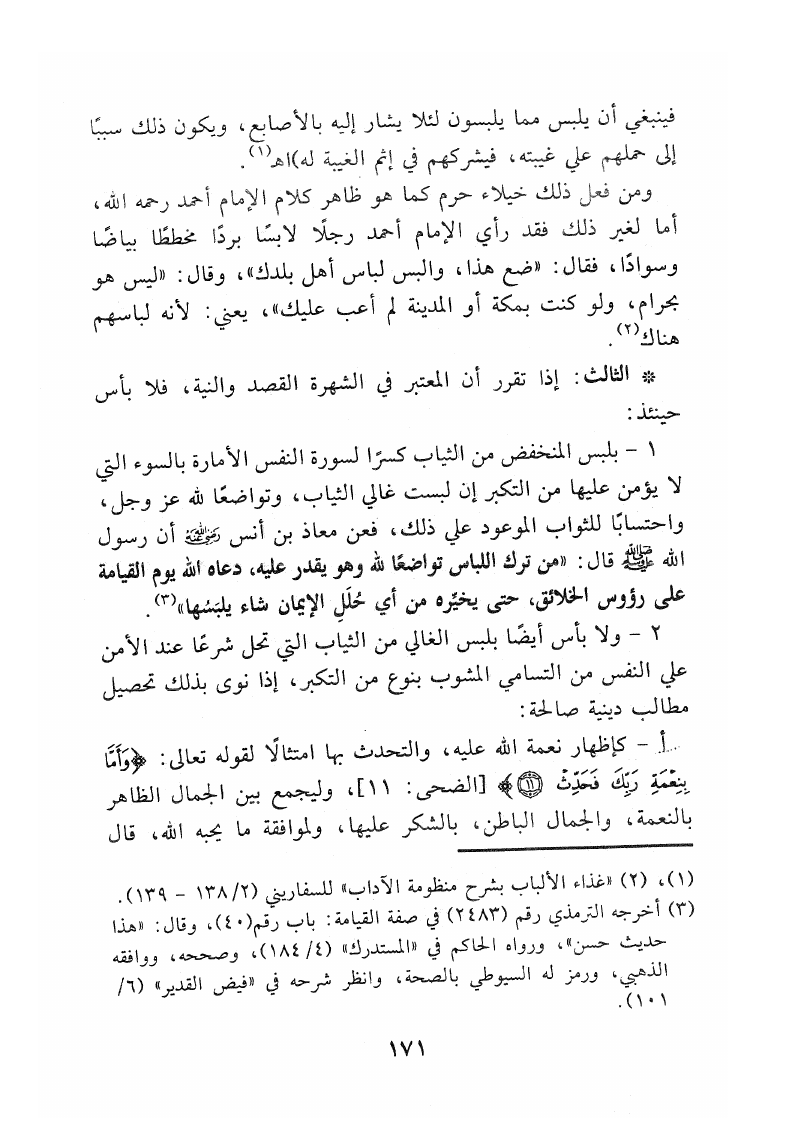 فينبغي أن يلبس مما يلبسون لئلا يشار إليه بالأصابع، ويكون ذلك سببًا
إلى حملهم علي غيبته، فيشركهم في إثم الغيبة له)اهـ(١).
ومن فعل ذلك خيلاء حرم كما هو ظاهر كلام الإمام أحمد رحمه الله،
أما لغير ذلك فقد رأي الإمام أحمد رجلًا لابسًا بردًا مخططًا بياضًا
وسوادًا، فقال: «ضع هذا، والبس لباس أهل بلدك»، وقال: «ليس هو
بحرام، ولو كنت بمكة أو المدينة لم أعب عليك»، يعني: لأنه لباسهم
هناك(٢).
* الثالث: إذا تقرر أن المعتبر في الشهرة القصد والنية، فلا بأس
حينئذ:
١ - بلبس المنخفض من الثياب كسرًا لسورة النفس الأمارة بالسوء التي
لا يؤمن عليها من التكبر إن لبست غالي الثياب، وتواضعًا لله عز وجل،
واحتسابًا للثواب الموعود علي ذلك، فعن معاذ بن أنس رضي الله عنه أن رسول
الله ﷺ قال: «من ترك اللباس تواضعًا لله وهو يقدر عليه، دعاه الله يوم القيامة
على رؤوس الخلائق، حتى يخيِّره من أي حُلَلِ الإيمان شاء يلبَسُها»(٣).
٢ - ولا بأس أيضًا بلبس الغالي من الثياب التي تحل شرعًا عند الأمن
علي النفس من التسامي المشوب بنوع من التكبر، إذا نوى بذلك تحصيل
مطالب دينية صالحة:
أ - كإظهار نعمة الله عليه، والتحدث بها امتثالًا لقوله تعالى: ﴿وَأَمَّا
بِنِعْمَةِ رَبِّكَ فَحَدِّثْ ١١﴾ [الضحى: ١١]، وليجمع بين الجمال الظاهر
بالنعمة، والجمال الباطن، بالشكر عليها، ولموافقة ما يحبه الله، قال
(١)، (٢) «غذاء الألباب بشرح منظومة الآداب» للسفاريني (٢/ ١٣٨ - ١٣٩).
(٣) أخرجه الترمذي رقم (٢٤٨٣) في صفة القيامة: باب رقم(٤٠)، وقال: «هذا
حديث حسن»، ورواه الحاكم في «المستدرك» (٤/ ١٨٤)، وصححه، ووافقه
الذهبي، ورمز له السيوطي بالصحة، وانظر شرحه في «فيض القدير» (٦/
١٠١).
١٧١